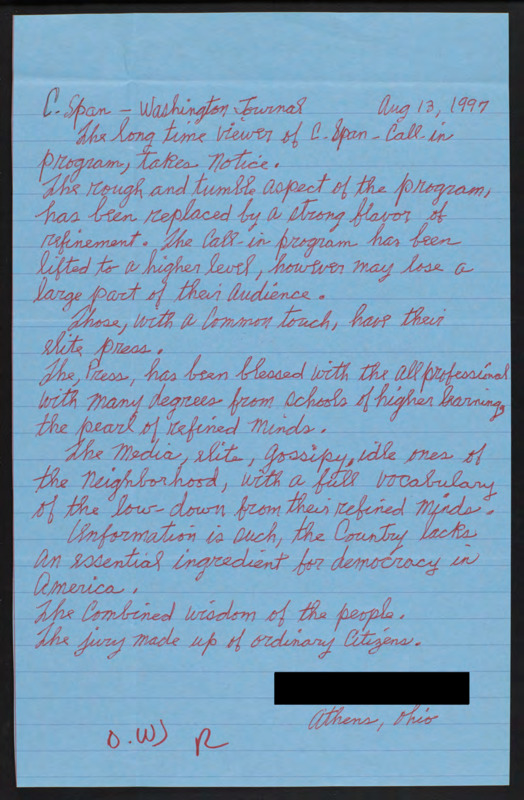 C. Span – Washington Journal Aug 13, 1997
The long time viewer of C. Span – Call-in
program, takes notice.
The rough and tumble aspect of the program,
has been replaced by a strong flavor of
refinement. The Call-in program has been
lifted to a higher level, however may lose a
large part of their audience.
Those, with a Common touch, have their
elite press.
The, Press, has been blessed with the all professional
with many degrees from schools of higher learning,
the pearl of refined minds.
The Media, elite, gossipy, idle ones of
the neighborhood, with a full vocabulary
of the low-down from their refined minds.
Information is such, the Country lacks
an essential ingredient for democracy in
America.
The Combined wisdom of the people.
The jury made up of ordinary Citizens.
Athens, Ohio
O.WJ R